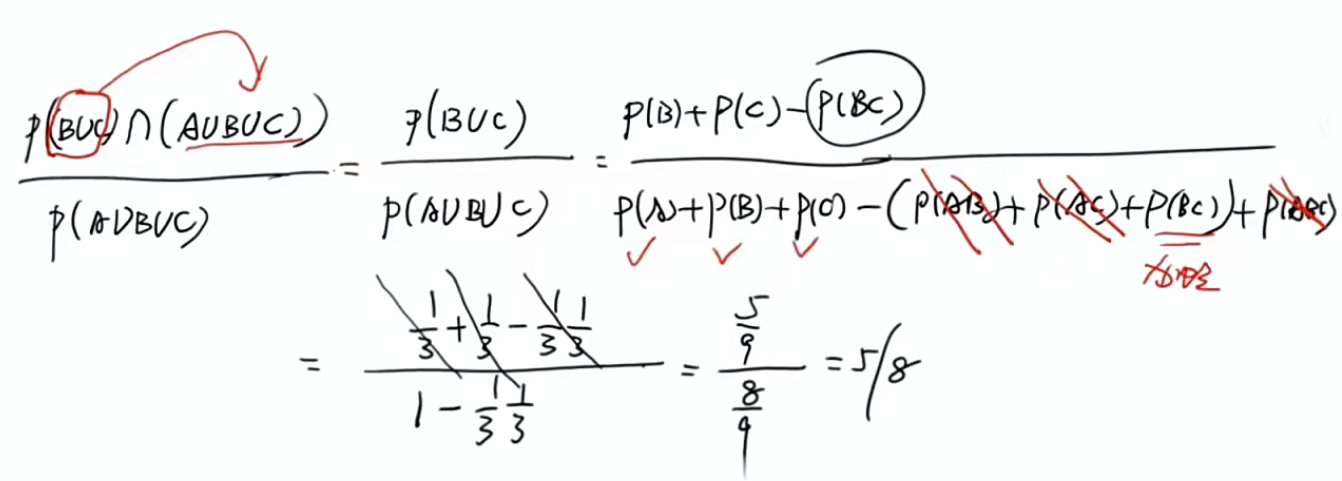 P(BUC)∩(AUBUC)) / P(AUBUC) = P(BUC) / P(AUBUC) = P(B)+P(C)-P(BC) / P(A)+P(B)+P(C)-(P(AB)+P(AC)+P(BC))+P(ABC)
= 1/3+1/3-1/3 1/3 / 1-1/3 1/3 = 5/9 / 8/9 = 5/8